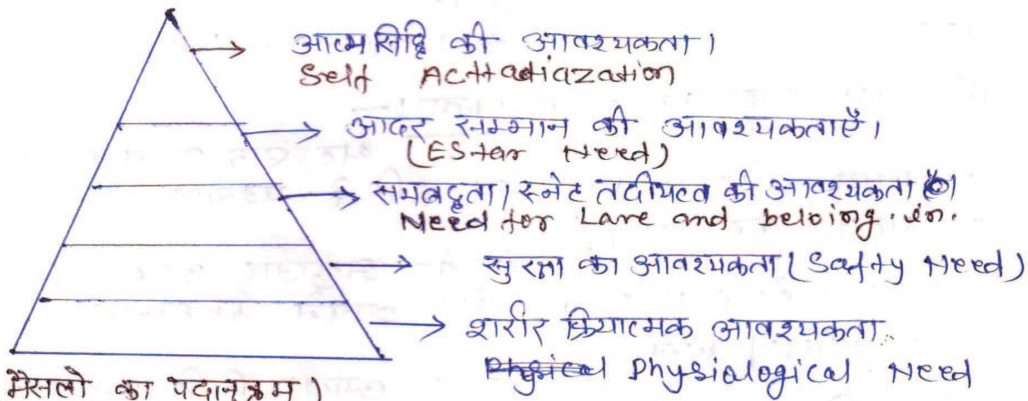 आत्म सिद्धि की आवश्यकता।
Self Acttadiazation
आदर सम्मान की आवश्यकताएँ।
(EStar Need)
समबद्धता। स्नेह तदीयत्व की आवश्यकता
Need for Lare and beloing. in.
सुरक्षा का आवश्यकता (Safty Need)
शारीर क्रियात्मक आवश्यकता.
Physical Physiological Need
मैसलो का पदानुक्रम)